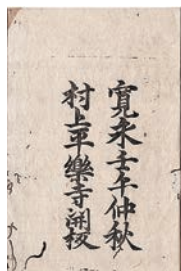 寛永壬午仲秋
村上平樂寺開板